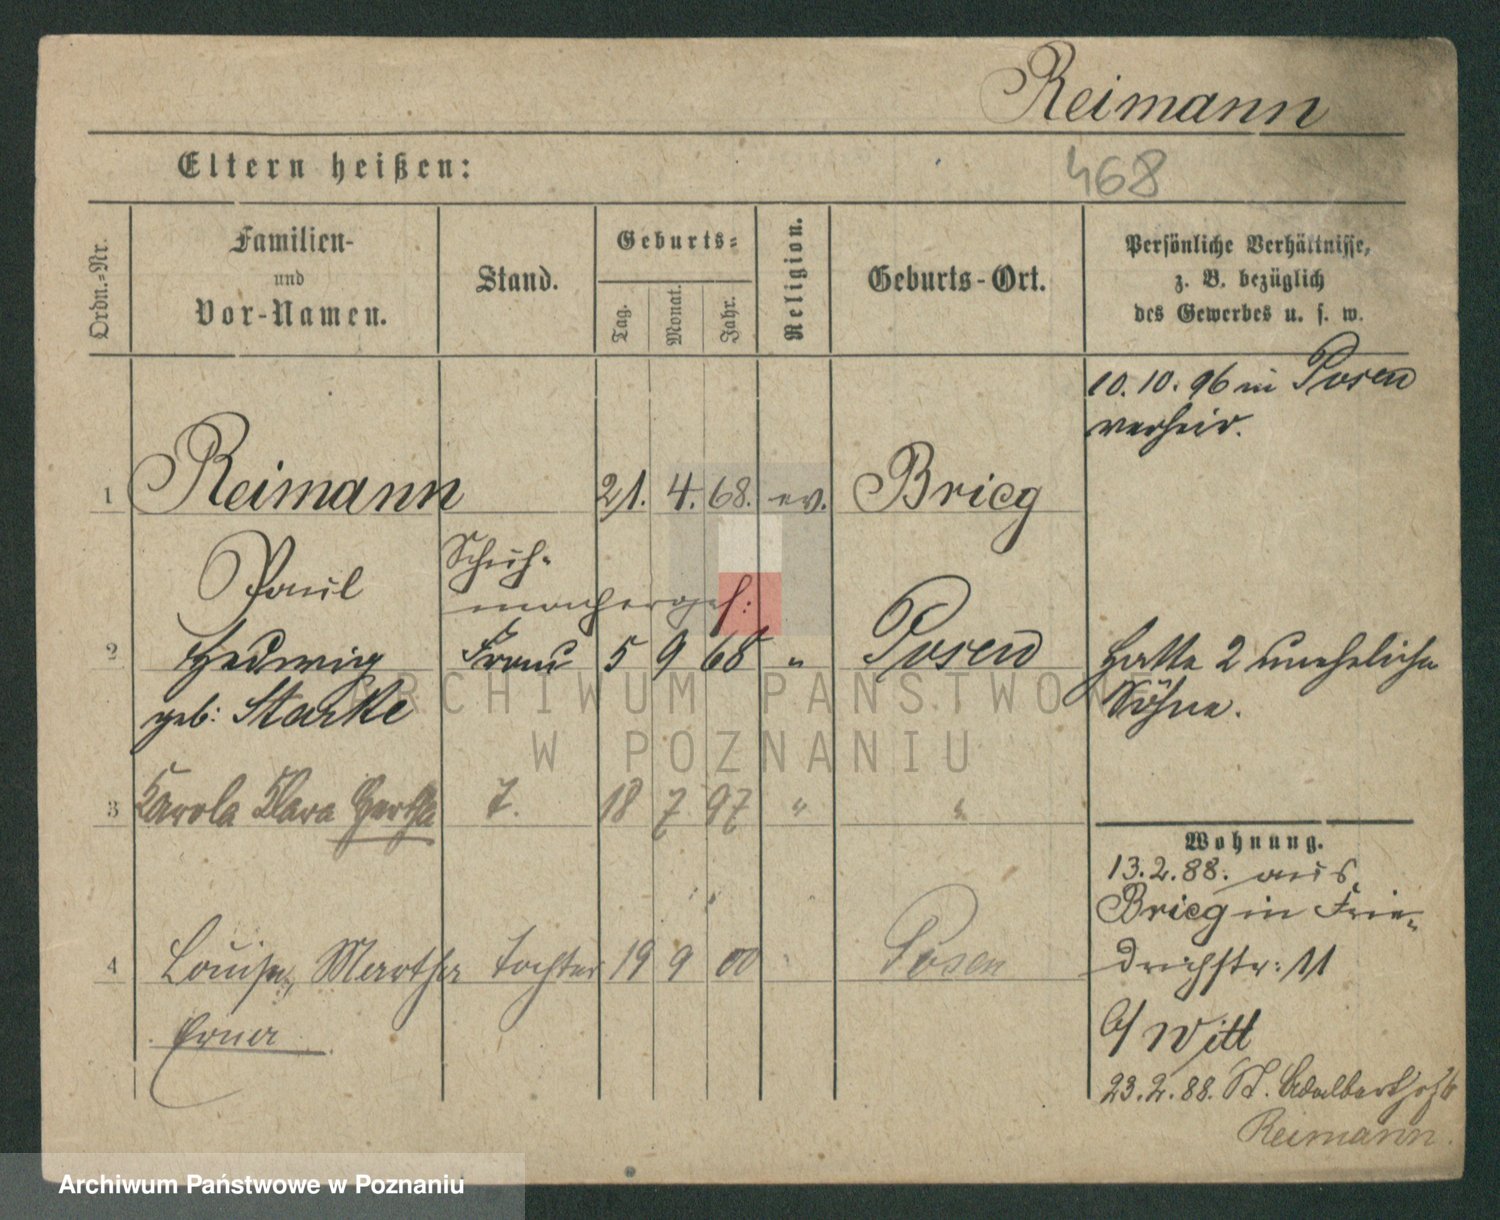 Reimann
Eltern heißen:
468
Ordn.-Nr.
Familien-
und
Vor-Namen.
Stand.
Geburts-
Tag.
Monat.
Jahr.
Religion.
Geburts-Ort.
Persönliche Verhältnisse,
z. B. bezüglich
des Gewerbes u. s. w.
10. 10. 96 in Posen
verheir.
1 Reimann 21. 4. 68. ev. Brieg
Paul Schuh-
machergес:
2 Hedwig Frau 5 9 68 " Posen Hatte 2 uneheliche
geb: Starke Söhne.
3 Karola Klara Hertha T. 18 7 97 " "
Wohnung.
13. 2. 88. aus
Brieg in Frie-
drichstr: 11
4 Louise, Martha Tochter 19 9 00 Posen
Erna
b/ Witt
23. 2. 88. St. Adalbert
Reimann.
ARCHIWUM PAŃSTWOWE
W POZNANIU
Archiwum Państwowe w Poznaniu